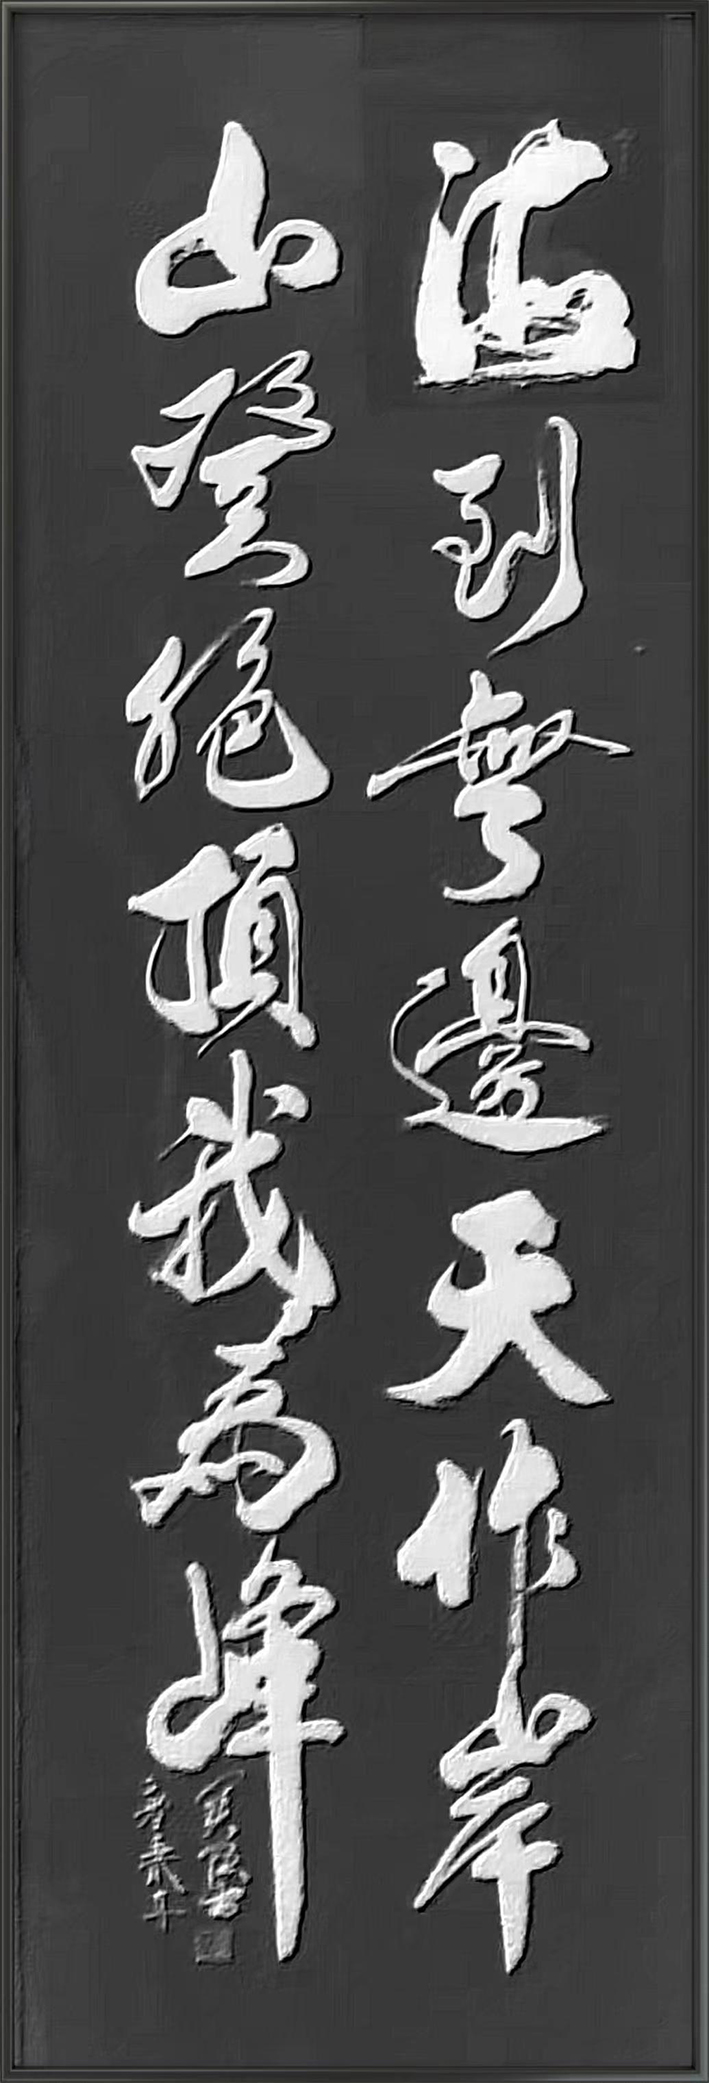 海到無邊天作岸
山登絕頂我為峰
辛未年